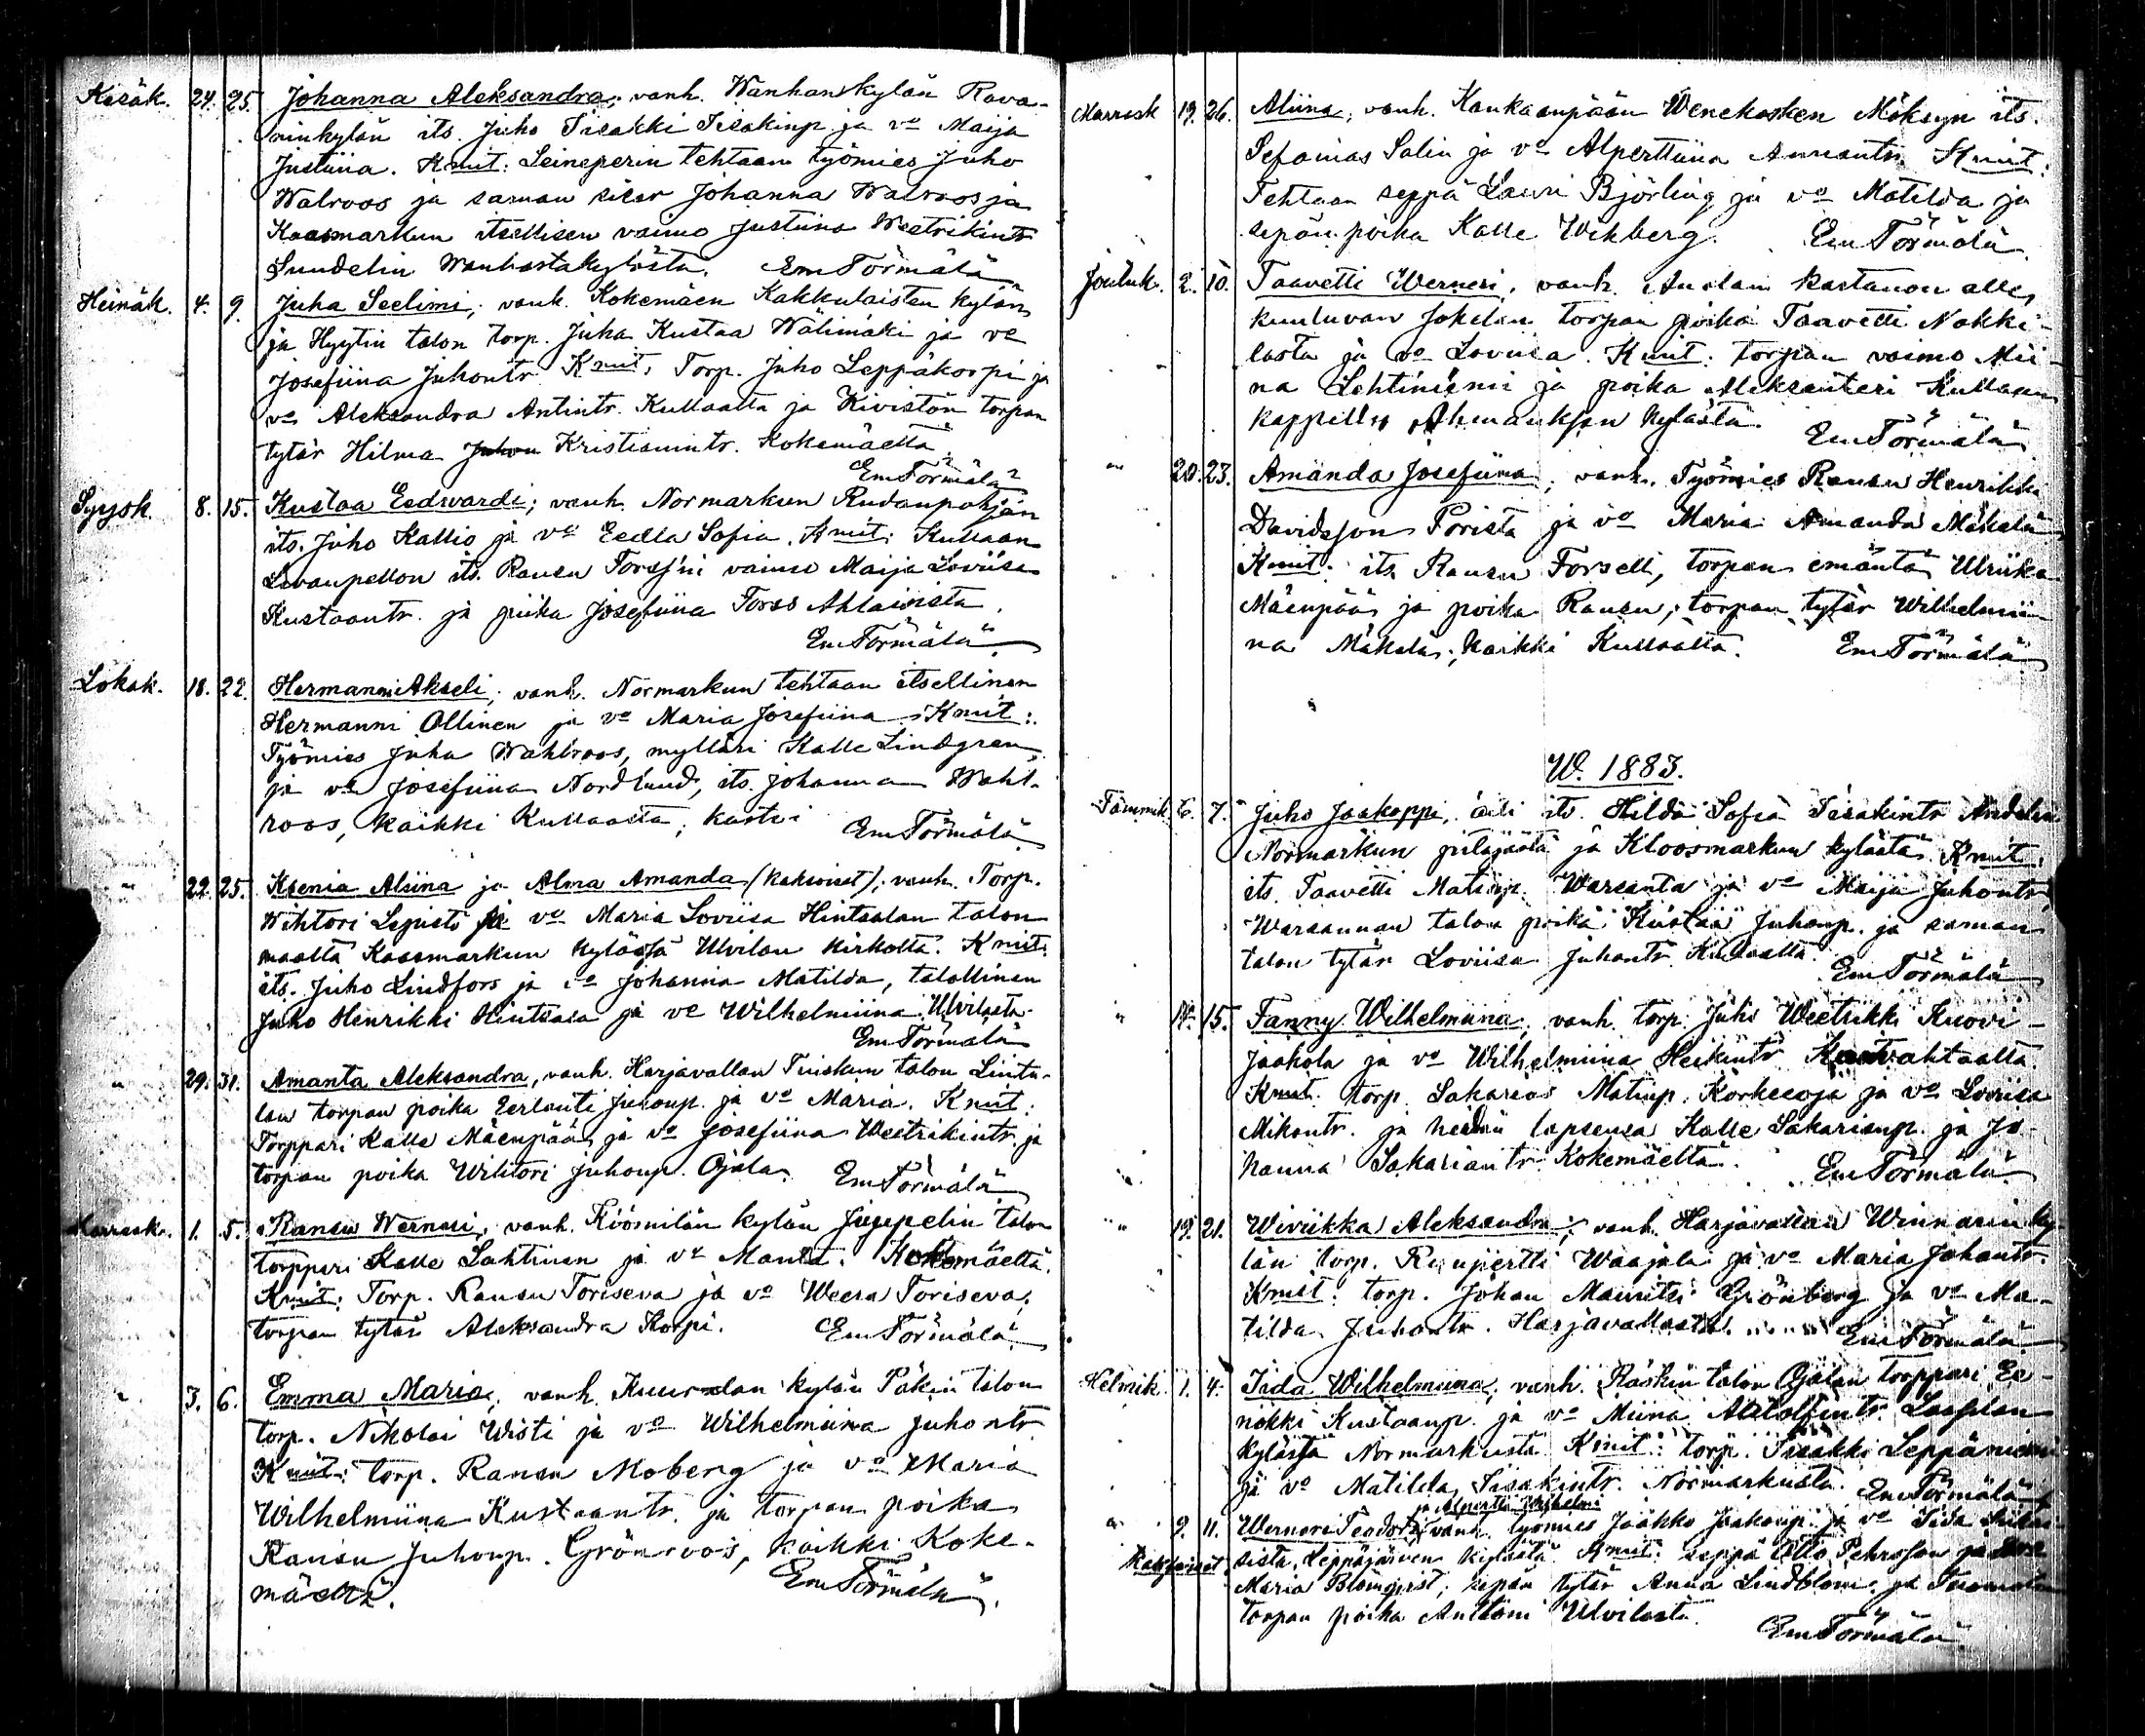 Kesäk. 24. 25. Johanna Aleksandra; vanh. Wanhankylän Rava-
ninkylän its. Juho Iisakki Iisakinp. ja vo Maija
Justiina. Kmit: Leineperin tehtaan työmies Juho
Walroos ja saman sisar Johanna Walroos ja
Kaasmarkun itsellisen vaimo Justiina Weetrikintr
Sundelin Wanhastakylästä. Em Törmälä
Heinäk. 4. 9. Juha Seelimi; vanh. Kokemäen Kakkulaisten kylän
ja Hyytin talon torp. Juha Kustaa Wälimäki ja vo
Josefiina Juhontr. Kmit. Torp. Juho Leppäkorpi ja
vo Aleksandra Antintr. Kullaalta ja Kivistön torpan
tytär Hilma Kristianintr. Kokemäeltä
Em Törmälä
Syysk. 8. 15. Kustaa Eedvardi; vanh. Normarkun Rudanpohjan
its. Juho Kallio ja vo Eedla Sofia. Kmit: Kullaan
Levanpellon its. Ransu Forss'in vaimo Maija Loviisa
Kustaantr. ja piika Josefiina Forss Ahlaisista.
Em Törmälä
Lokak. 18. 22. Hermanni Akseli; vanh. Normarkun tehtaan itsellinen
Hermanni Ollinen ja vo Maria Josefiina. Kmit:
Työmies Juha Wahlroos, mylläri Kalle Lindgren
ja vo Josefiina Nordlund, its. Johanna Wahl-
roos, kaikki Kullaalta, kastoi Em Törmälä
" 22. 25. Ksenia Aliina ja Alma Amanda (kaksoiset); vanh. Torp.
Wihtori Lepistö ja vo Maria Loviisa Hintsalan talon
maalta Kaasmarkun kylässä Ulvilan kirkolta. Kmit:
its. Juho Lindfors ja vo Johanna Matilda, talollinen
Juho Henrikki Hintsala ja vo Wilhelmiina Ulvilasta.
Em Törmälä
" 29. 31. Amanta Aleksandra, vanh. Harjavallan Tuiskun talon Lintu-
lan torpan poika Eerlanti Juhonp. ja vo Maria. Kmit:
Torppari Kalle Mäenpää ja vo Josefiina Weetrikintr. ja
torpan poika Wihtori Juhonp. Ojala. Em Törmälä
Marrask. 1. 5. Ransu Werneri, vanh. Köömilän kylän Juupelin talon
torppari Kalle Lahtinen ja vo Manta. Kokemäeltä.
Kmit: Torp. Ransu Toriseva ja vo Weera Toriseva,
torpan tytär Aleksandra Korpi. Em Törmälä
" 3. 6. Emma Maria, vanh. Kuurolan kylän Päkin talon
torp. Nikolai Wisti ja vo Wilhelmiina Juhontr.
Kmit: torp. Ransu Moberg ja vo Maria
Wilhelmiina Kustaantr. ja torpan poika
Ransu Juhonp. Grönroos, kaikki Koke-
mäeltä. Em Törmälä
Marrask 19. 26. Aliina, vanh. Kankaanpään Wenekosken Mäkisyn its.
Sefanias Salin ja vo Alperttiina Annantr. Kmit:
Tehtaan seppä Lauri Björling ja vo Matilda ja
sepän poika Kalle Wikberg. Em Törmälä.
Jouluk. 2. 10. Taavetti Werneri, vanh. Anolan kartanon alle
kuuluvan Jokelan torpan poika Taavetti Nakki-
lasta ja vo Lovisa. Kmit. torpan vaimo Mii-
na Lehtiniemi ja poika Aleksanteri Kullaan
kappelin kylästä. Em Törmälä
" 20. 23. Amanda Josefiina, vanh. Työmies Ransu Henrikki
Davidsson Porista ja vo Maria Amanda Mäkelä
Kmit. its. Ransu Forsell, torpan emäntä Ulriika
Mäenpää ja poika Ransu, torpan tytär Wilhelmii-
na Mäkelä, kaikki Kullaalta. Em Törmälä
W. 1883.
Tammik. 6. 7. Juho Jaakoppi, äiti its. Hilda Sofia Iisakintr Andelin
Normarkun pitäjästä ja Kloosmarkun kylästä. Kmit:
its. Taavetti Matinp. Warsanta ja vo Maija Juhontr.,
Warsannan talon poika Kustaa Juhonp. ja saman
talon tytär Loviisa Juhontr. Kullaalta. Em Törmälä
" 14. 15. Fanny Wilhelmiina, vanh. torp. Juho Weetrikki Kuovi-
Jaakola ja vo Wilhelmiina Heikintr
Kmit. torp. Sakarias Matinp. Korkeeoja ja vo Loviisa
Mikontr. ja heidän lapsensa Kalle Sakarianp. ja Jo-
hanna Sakariantr. Kokemäeltä. Em Törmälä
" 19. 21. Wiviikka Aleksandra; vanh. Harjavallan Winnarin ky-
län torp. Ruupertti Waajala ja vo Maria Johantr.
Kmit. torp. Johan Mauritsi Grönberg ja vo Ma-
tilda Juhontr. Harjavallasta. Em Törmälä
Helmik. 1. 4. Iida Wilhelmiina, vanh. Räskin talon Ojalan torppari Ee-
nokki Kustaanp. ja vo Miina Adolfintr. Lassilan
kylästä Normarkusta. Kmit: torp. Iisakki Leppäniemi
ja vo Matilda Iisakintr. Normarkusta. Em Törmälä
ja Alpertti Wilhelmi
" 9. 11. Werneri Teodori, vanh. työmies Jaakko Jaakonp. ja vo Iida
Kaksoiset Leppäjärven kylästä. Kmit: seppä Otto Pehrsson ja
Maria Blomqvist, sepän tytär Anna Lindblom ja
torpan poika Anttoni Ulvilasta.
Em Törmälä